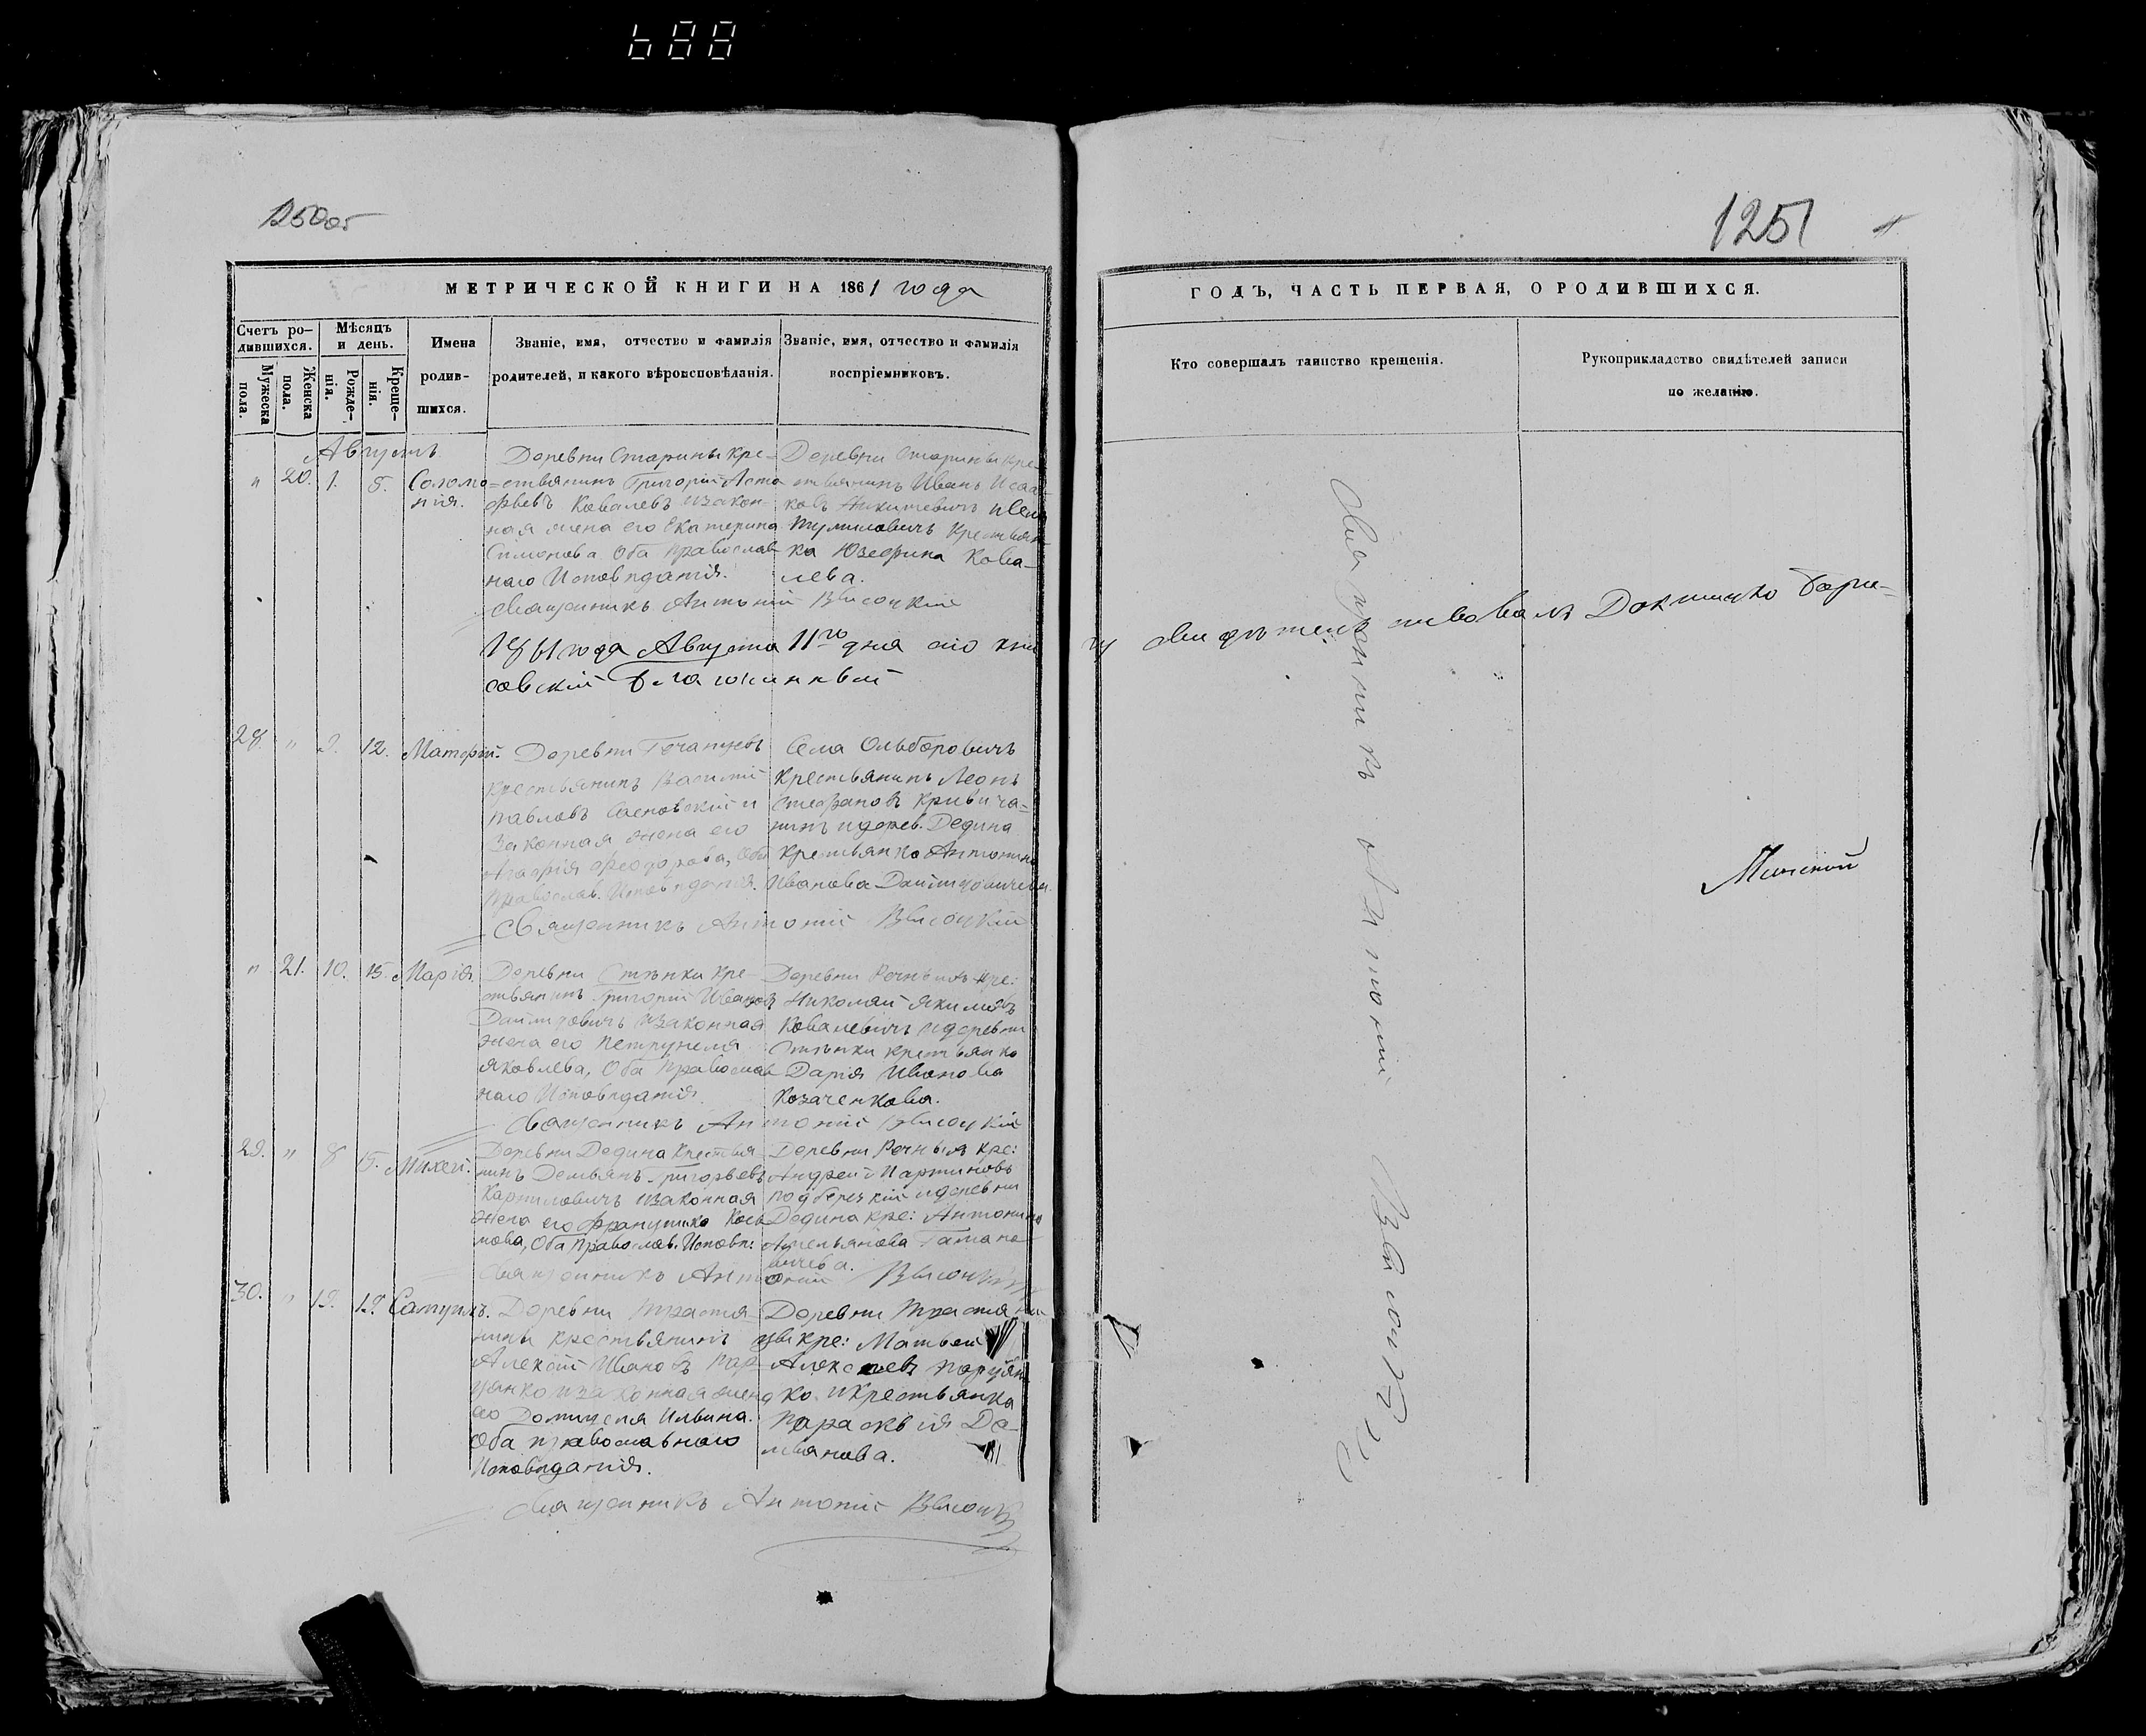 688
1250об
1251
МЕТРИЧЕСКОЙ КНИГИ НА 1861 года
ГОДЪ, ЧАСТЬ ПЕРВАЯ, О РОДИВШИХСЯ.
Счетъ ро-
дившихся.
Мужеска
пола.
Женска
пола.
Мѣсяцъ
и день.
Рожде-
нія.
Креще-
нія.
Имена
родив-
шихся.
Званіе, имя, отчество и фамилія
родителей, и какого вѣроисповѣданія.
Званіе, имя, отчество и фамилія
воспріемниковъ.
Кто совершалъ таинство крещенія.
Рукоприкладство свидѣтелей записи
по желанію.
Августъ
" 20. 1. 5. Соломо
нія.
Деревни Старины кре-
стьянинъ Григорій Аста
фьевъ Ковалевъ изакон
ная жена его Екатерина
Симонова Оба православ
наго Исповѣданія.
Деревни Старины кре
стьянинъ Иванъ
Никитевичъ
крестьян
ка Юзефина Кова-
лева.
Священникъ Антоній Высоцкій
1861 года Августа 11го дня сію кни
гу свидѣтельствовалъ Докшицко Бори-
совскій Благочинный
28. " 9. 12. Матфій.
Деревни
крестьянинъ Василій
Павловъ Сосновскій и
Законная жена его
Агафія Феодорова, Оба
православ. Исповѣданія.
Села Ольберовичъ
крестьянинъ Леонъ
Стефановъ Кривича-
нинъ идерев. Дедина
крестьянка Антонина
Иванова
Священникъ Антоній Высоцкій
" 21. 10. 15. Марія.
Деревни Стѣнки кре-
стьянинъ Григорій Ивановъ
изаконная
жена его Петрунеля
Яковлева, Оба Православ
наго Исповѣданія.
Деревни кре:
Николай Якимовъ
Ковалевичъ идеревни
Стѣнки крестьянка
Дарія Иванова
Козаченкова.
Священникъ Антоній Высоцкій
29. " 8 15. Михей.
Деревни Дедина Крестья
нинъ Демьянъ Григорьевъ
Карниловичъ изаконная
жена его Францишка Кось
мова, Оба Православ. Исповѣ:
Деревни кре:
Андрей Мартиновъ
Подберезкій идеревни
Дедина кре: Антонина
вичева.
Священникъ Антоній Высоцкій
30. " 19. 19. Самуилъ.
Деревни
крестьянинъ
Алексій Ивановъ Пар-
цянко изаконная жена
его Домицеля Ильина.
Оба православнаго
Исповѣданія.
Деревни
кре: Матвей
Алексѣевъ Парцян
ко. икрестьянка
Парасквія Де
мьянова.
Священникъ Антоній Высоцкій
Священникъ Антоній Высоцкій
Минской